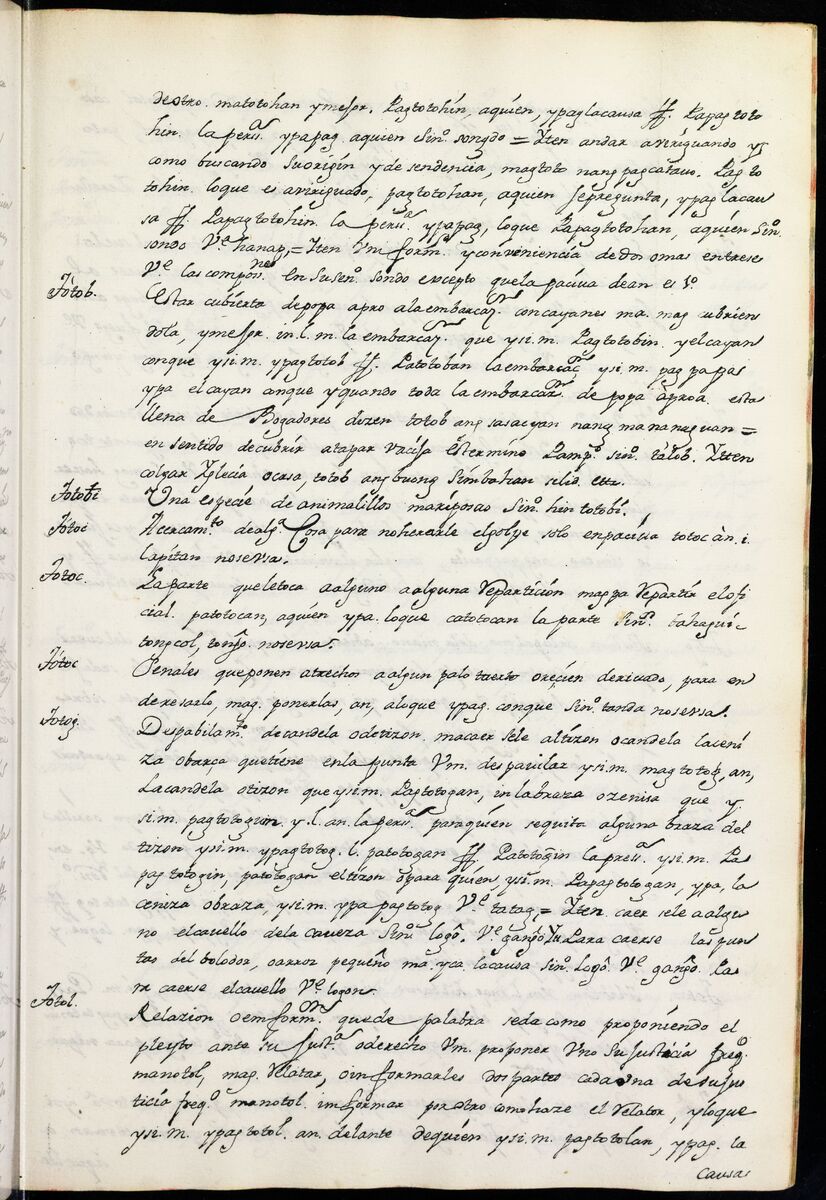 de otro. matotohan ymespr. Pagtotohin, aquien, ypag lacausa ff. Papagtoto
hin. la persª. ypapag. aquien Sinº. songdo = Yten andar aviriguando y
como buscando su origin y desendencia, magtoto nang pagcatauo. Pagto
tohin. loque es aviriguado, pagtotohan, aquien sepregunta, ypag lacau
sa ff. Papagtotohin. la persª. ypapag, loque Papagtotohan, aquien Sinº.
sondo Vᵉ. hanap, = Yten Vm formᵉ. y conviniencia de dos o mas entre se
Vᵉ. las composⁿᵉˢ. en su senº. sondo excepto quela paciua de an es Yº.
Tótob. Estar cubierta de popa a proa la embarcazⁿ. con cayanes ma. mag cubrien
dola, ymespr. in. l. m. la embarcazⁿ. que ysi.m. Pagtotobin. y el cayan
conque ysi.m. ypagtotob ff. Patotoban la embarcacⁿ. ysi.m. pag papag
ypa el cayan conque y quando toda la embarcazⁿ. de popa aproa esta
llena de Bogadores dizen totob ang sasacyan nang mananaguan =
en sentido de cubrir atapar Vacija es termino Pampº. sinº. táub. Ytten
colgar Yglecia ocasa, totob ang buong Simbahan selid. ettz.
Totobi Una especie de animalillos mariposas Sinº. hin totobi.
Totoc Acercamᵗᵒ. de algª. Cosa para no herrarle el golpe solo en paciua totoc an. i
lapitan noserva.
Totoc. La parte que le toca a alguno a alguna Repartición magpa Repartir el ofi
cial. patotocan, aquien ypa. loque catotocan la parte Sinº. bahagui
tongcol, tongº. noserva.
Tótoc Señales que ponen atrechos a algun palo tuerto o recien derivado, para en
deresarlo, mag. ponerlas, an, a loque ypag. conque Sinº. tanda noserva.
Totog. Despabilamᵗᵒ. de candela o de tizon. macaer sele al tizon o candela la ceni
za obraça quetiene en la punta Vm. despavilar ysi.m. magtotog, an,
La candela otizon que ysi.m. Pagtotogan, in la braza o zenisa que y
si.m. pagtotogin. y.l. an. la persª. para quien se quita alguna braza del
tizon ysi.m. ypagtotog. l. patotogan ff. Patotogin la persª. ysi.m. Pa
pagtotogin, patotogan el tizon o para quien ysi.m. Papagtotogan, ypa, la
ceniza obraza, ysi.m. ypapagtotog Vᵉ. tatag, = Yten. caer sele a algu
no el cavello de la caveza Sinº. logô. Vᵉ. gangô Yt. Para caerse las pun
tas del bolador, o arroz pequeño ma. yca. la causa Sinº. Logô. Vᵉ. gangô. Pa
ra caerse el cavello Vᵉ. logon.
Tótol. Relazion oemformⁿ. que de palabra se da como proponiendo el
pleyto ante su Justª. o derecho Vm. proponer Uno su justicia freqº.
manotol, mag. Relatar, o informarles dos partes cada una de su jus
ticia freqº. manotol. informar por otro como haze el Relator, y loque
ysi.m. ypagtotol. an. delante de quien ysi.m. pagtotolan, ypag. la
causa